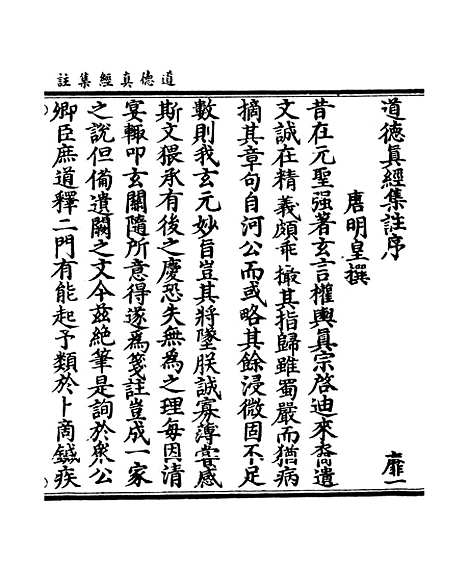 道德真經集註
道德眞經集註序 靡一
唐明皇撰
昔在元聖强著玄言權輿眞宗啓迪來裔遺
文誠在精義頗乖撮其指歸雖蜀嚴而猶病
摘其章句自河公而或略其餘浸微固不足
數則我玄元妙旨豈其將墜朕誠寡薄嘗感
斯文猥承有後之慶恐失無爲之理每因清
宴輙叩玄關隨所意得遂爲箋註豈成一家
之說但備遺闕之文今兹絶筆是詢於衆公
卿臣庶道釋二門有能起予類於卜商鍼疾